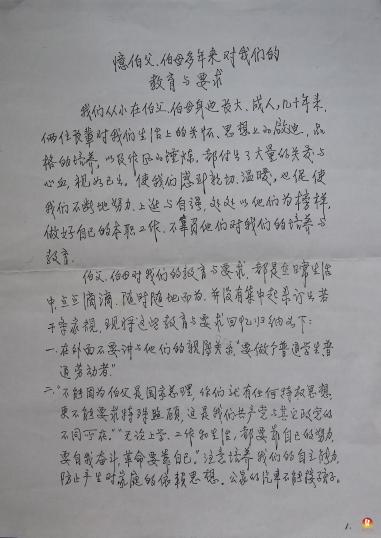 憶伯父、伯母多年来对我们的
教育与要求
我们从小在伯父、伯母身边长大、成人,几十年来,
俩位长辈对我们生活上的关怀、思想上的启迪、品
格的培养,以及作风的锤炼,都付出了大量的关爱与
心血,视如己出。使我们感到亲切、温暖,也促使
我们不断地努力、上进与自强,处处以他们为榜样,
做好自己的本职工作,不辜负他们对我们的培养与
教育。
伯父、伯母对我们的教育与要求,都是在日常生活
中点点滴滴、随时随地而为,并没有集中起来订出若
干条家规,现将这些教育与要求回忆归纳如下:
一、在外面不要讲与他们的亲属关系,“要做个普通学生普
通劳动者。”
二、“不能因为伯父是国家总理,你们就有任何特权思想,
更不能要求特殊照顾,这是我们共产党与其它政党的
不同所在。”“无论上学、工作和生活,都要靠自己的努力,
要自我奋斗,革命要靠自己。”注意培养我们的自立能力,
防止产生对家庭的依赖思想。公家的汽车不能接孩子。
1.